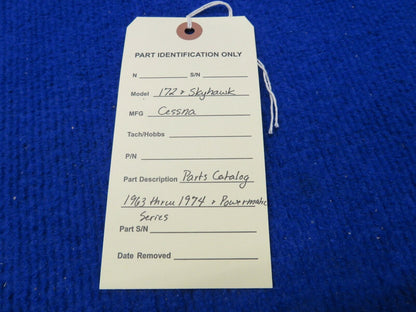 PART IDENTIFICATION ONLY
N __________ S/N __________
Model 172 & Skyhawk
MFG Cessna
Tach/Hobbs
P/N
Part Description Parts Catalog
1963 thru 1974 & Powermatic
Series
Part S/N
Date Removed